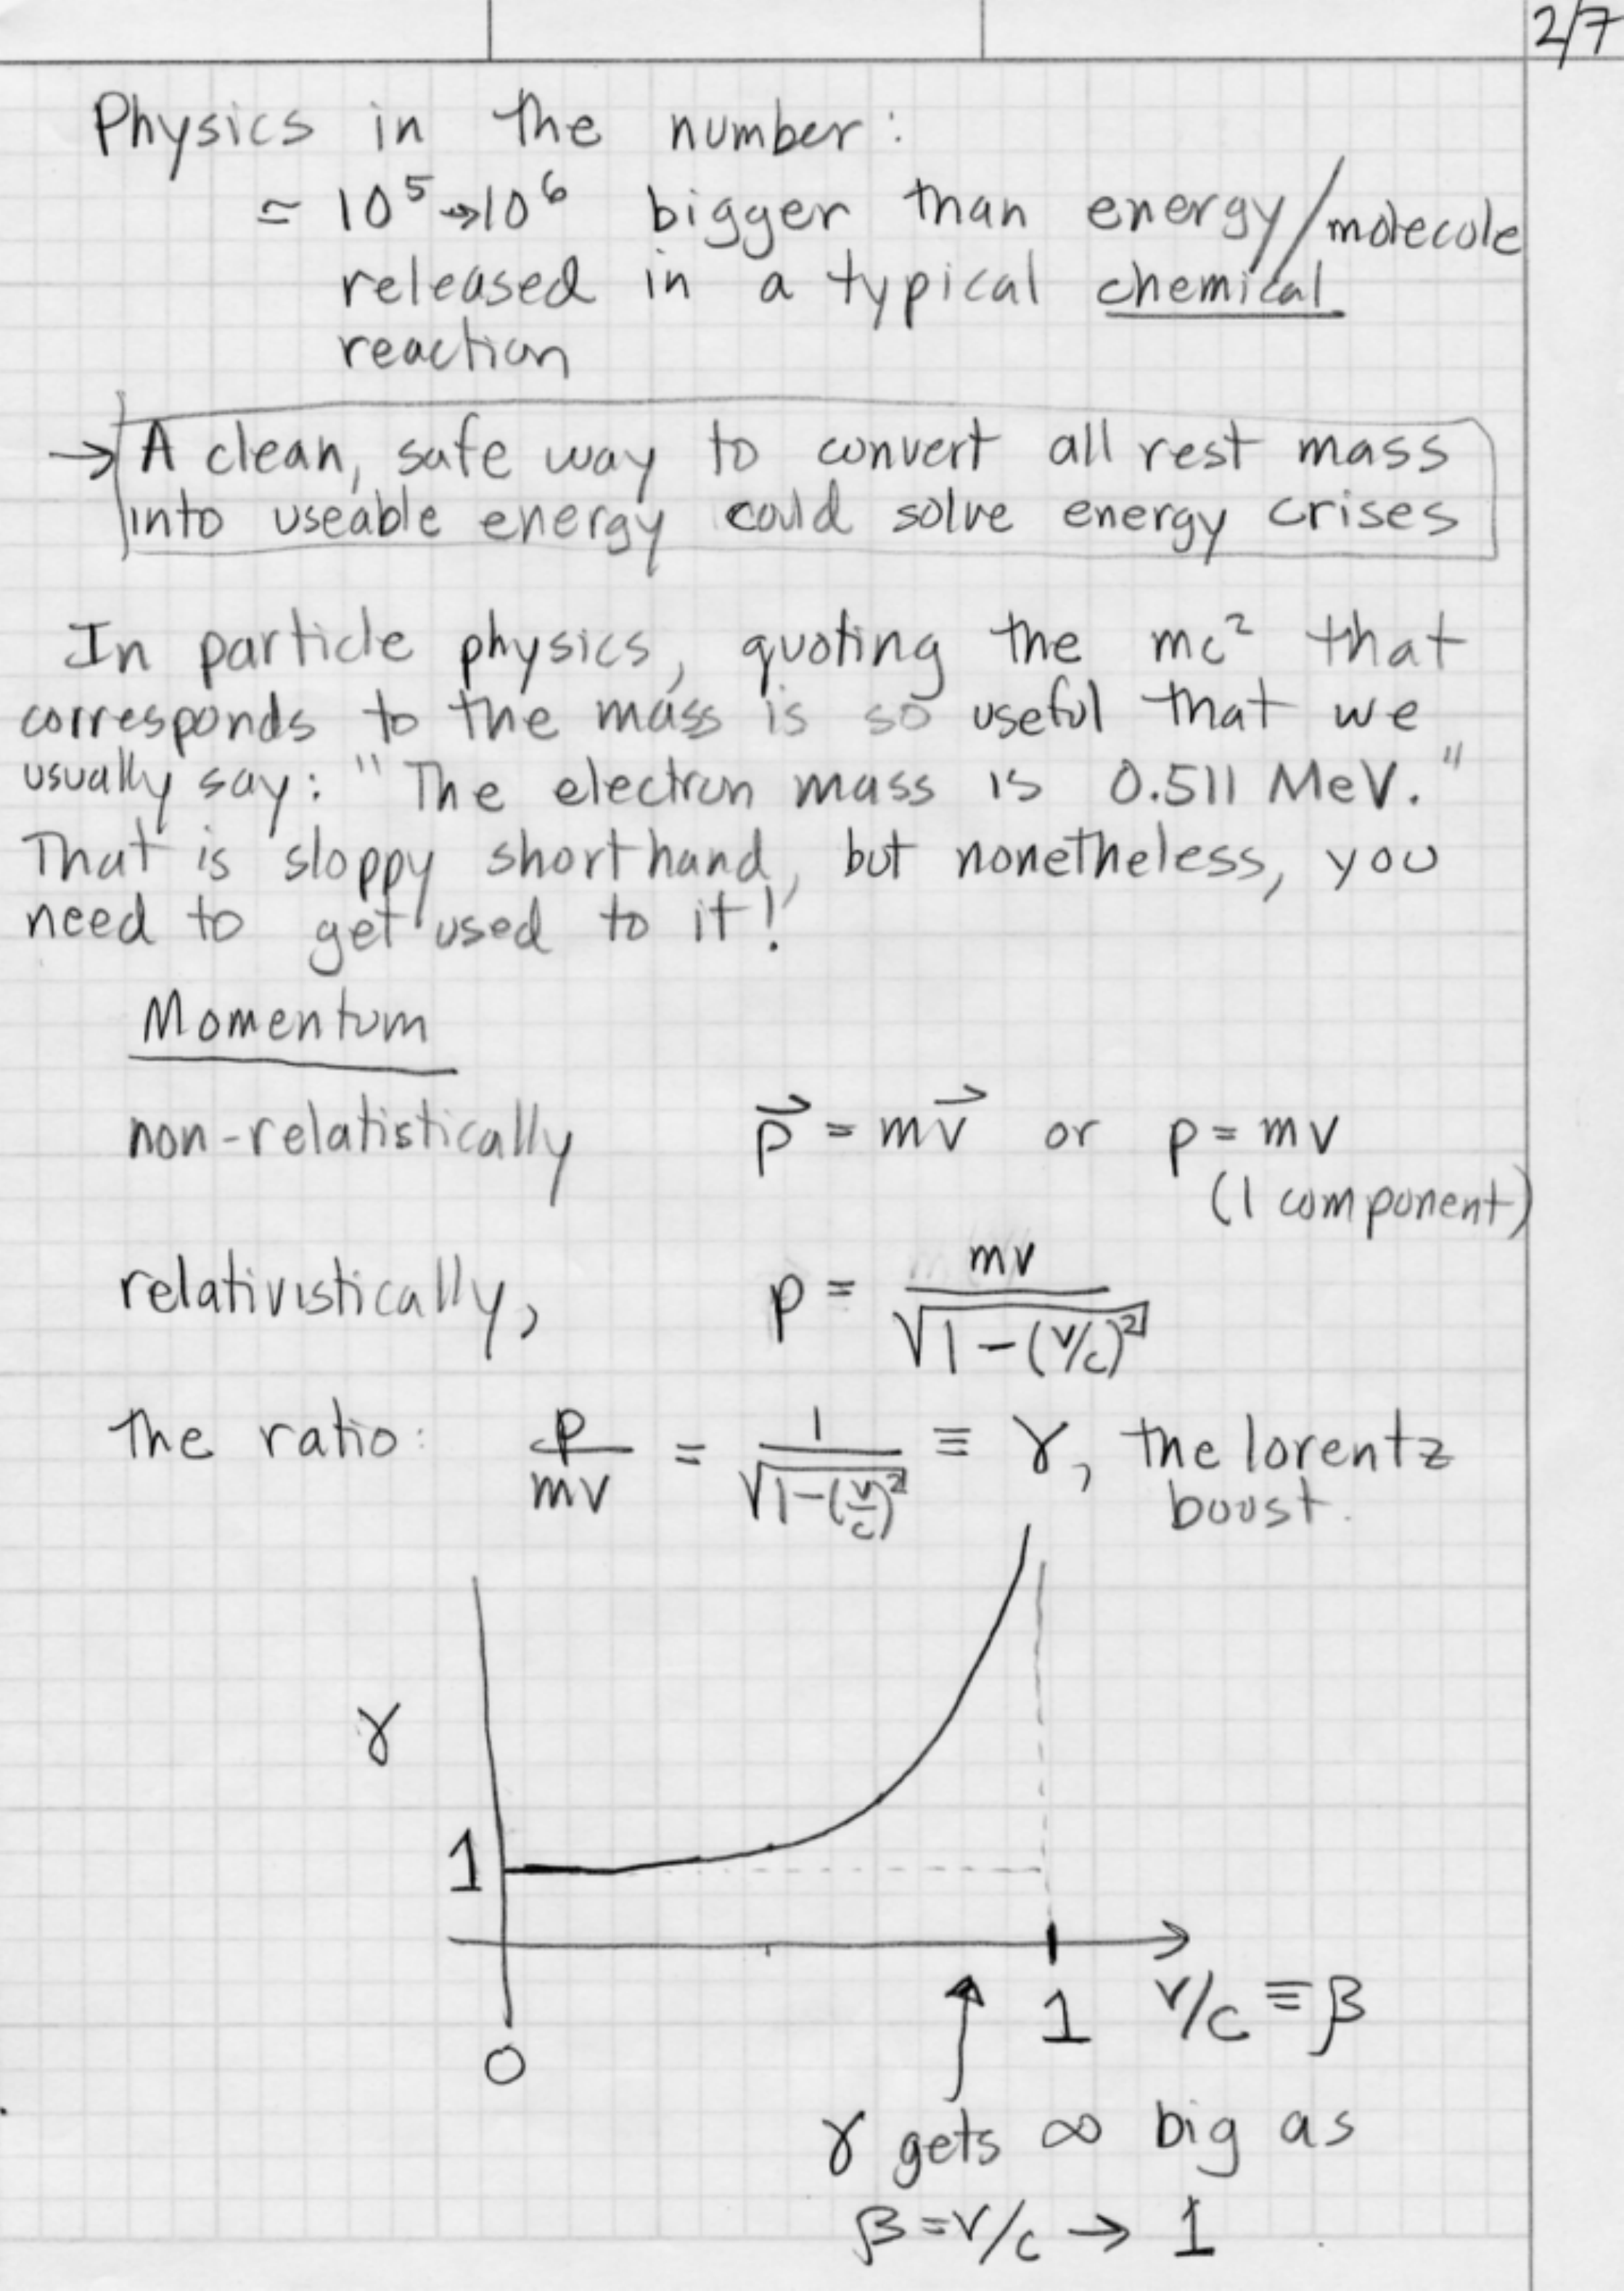 2/7
Physics in the number:
≃ 10⁵→10⁶ bigger than energy/molecule
released in a typical chemical
reaction
→ A clean, safe way to convert all rest mass
into useable energy could solve energy crises
In particle physics, quoting the mc² that
corresponds to the mass is so useful that we
usually say: "The electron mass is 0.511 MeV."
That is sloppy shorthand, but nonetheless, you
need to get used to it!
Momentum
non-relatistically p⃗ = mv⃗ or p = mv
(1 component)
relativistically, p = mv/√(1-(v/c)²)
the ratio: p/mv = 1/√(1-(v/c)²) ≡ γ, the lorentz
boost.
γ
1
1 v/c ≡ β
0
γ gets ∞ big as
β = v/c → 1